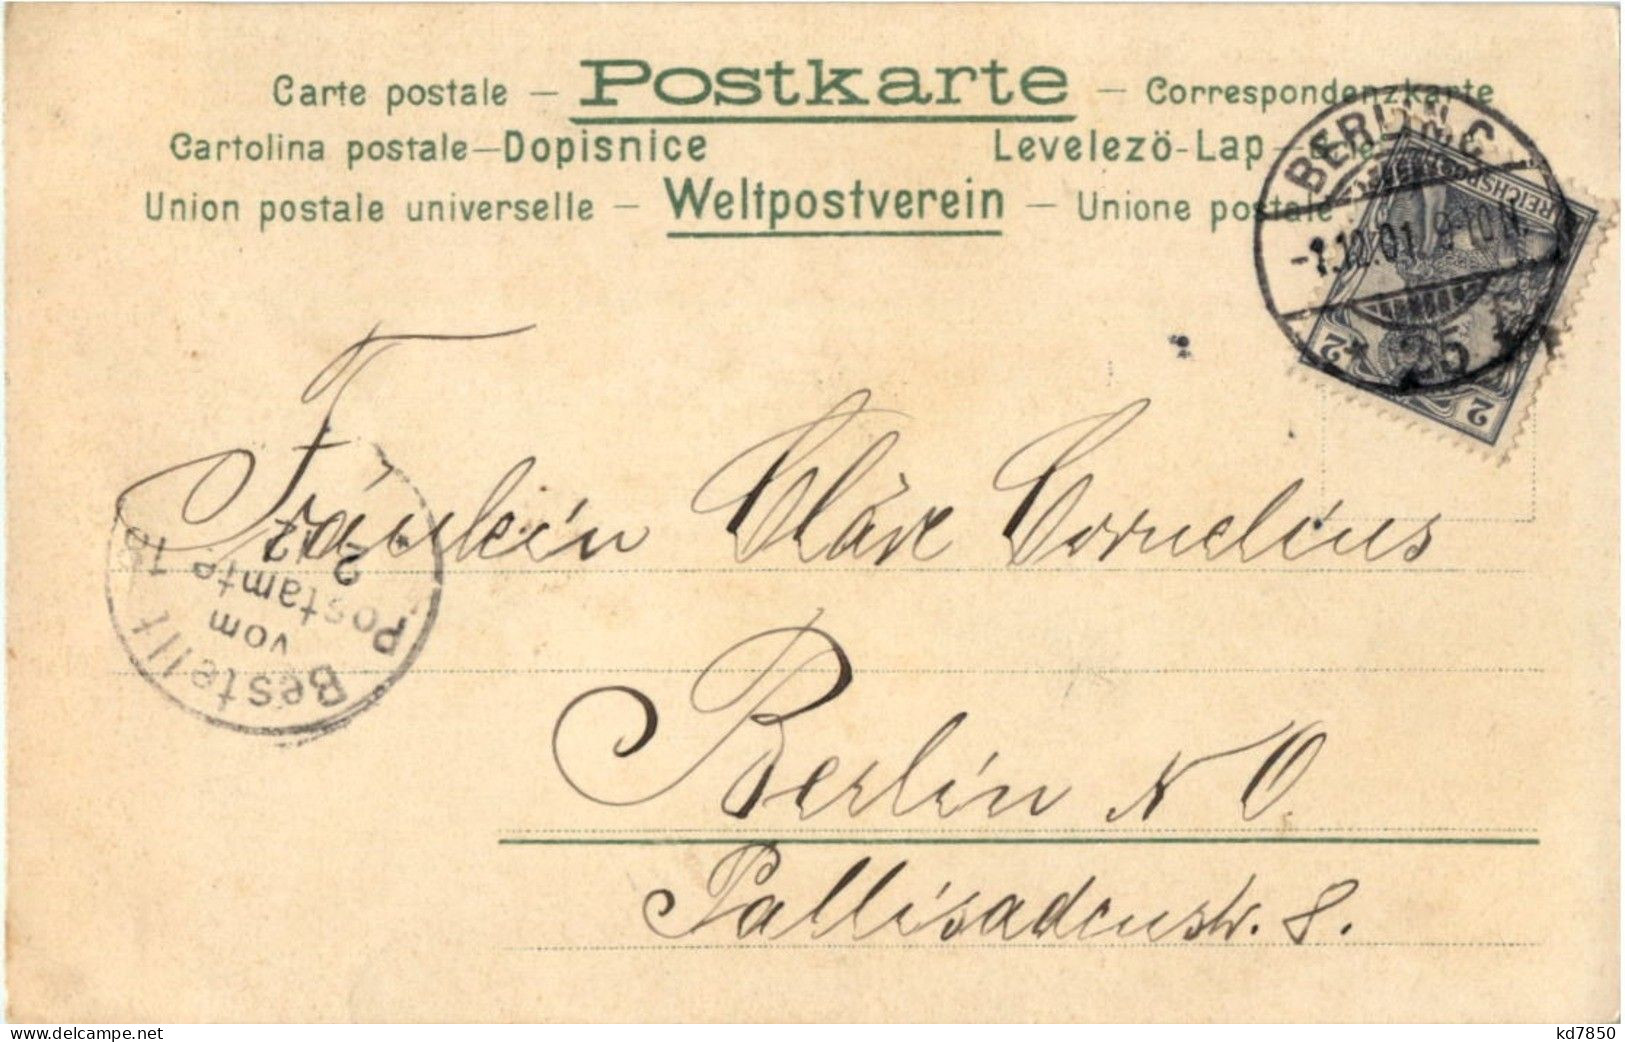 Carte postale – Postkarte – Correspondenzkarte
Cartolina postale–Dopisnice Levelezö-Lap–
Union postale universelle – Weltpostverein – Unione postale
BERLIN, C
-1.12.01. 9-10N.
* 25 *
REICHSPOST
2 2
Fräulein Cläre Cornelius
Bestellt
vom
Postamte
2
Berlin N O.
Pallisadenstr. 8.
www.delcampe.net
kd7850